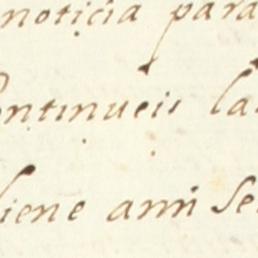 noticia para
ontinueis la
iene ami Se